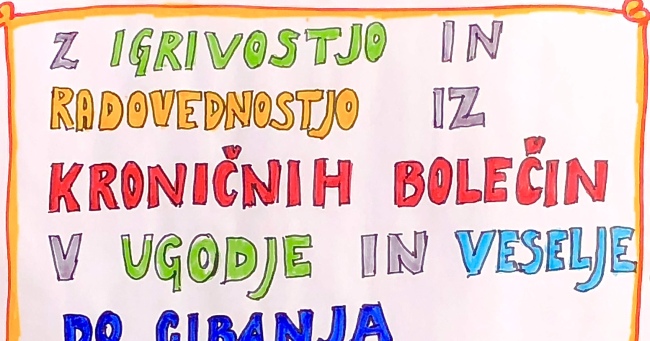 Z IGRIVOSTJO IN
RADOVEDNOSTJO IZ
KRONIČNIH BOLEČIN
V UGODJE IN VESELJE
DO GIBANJA